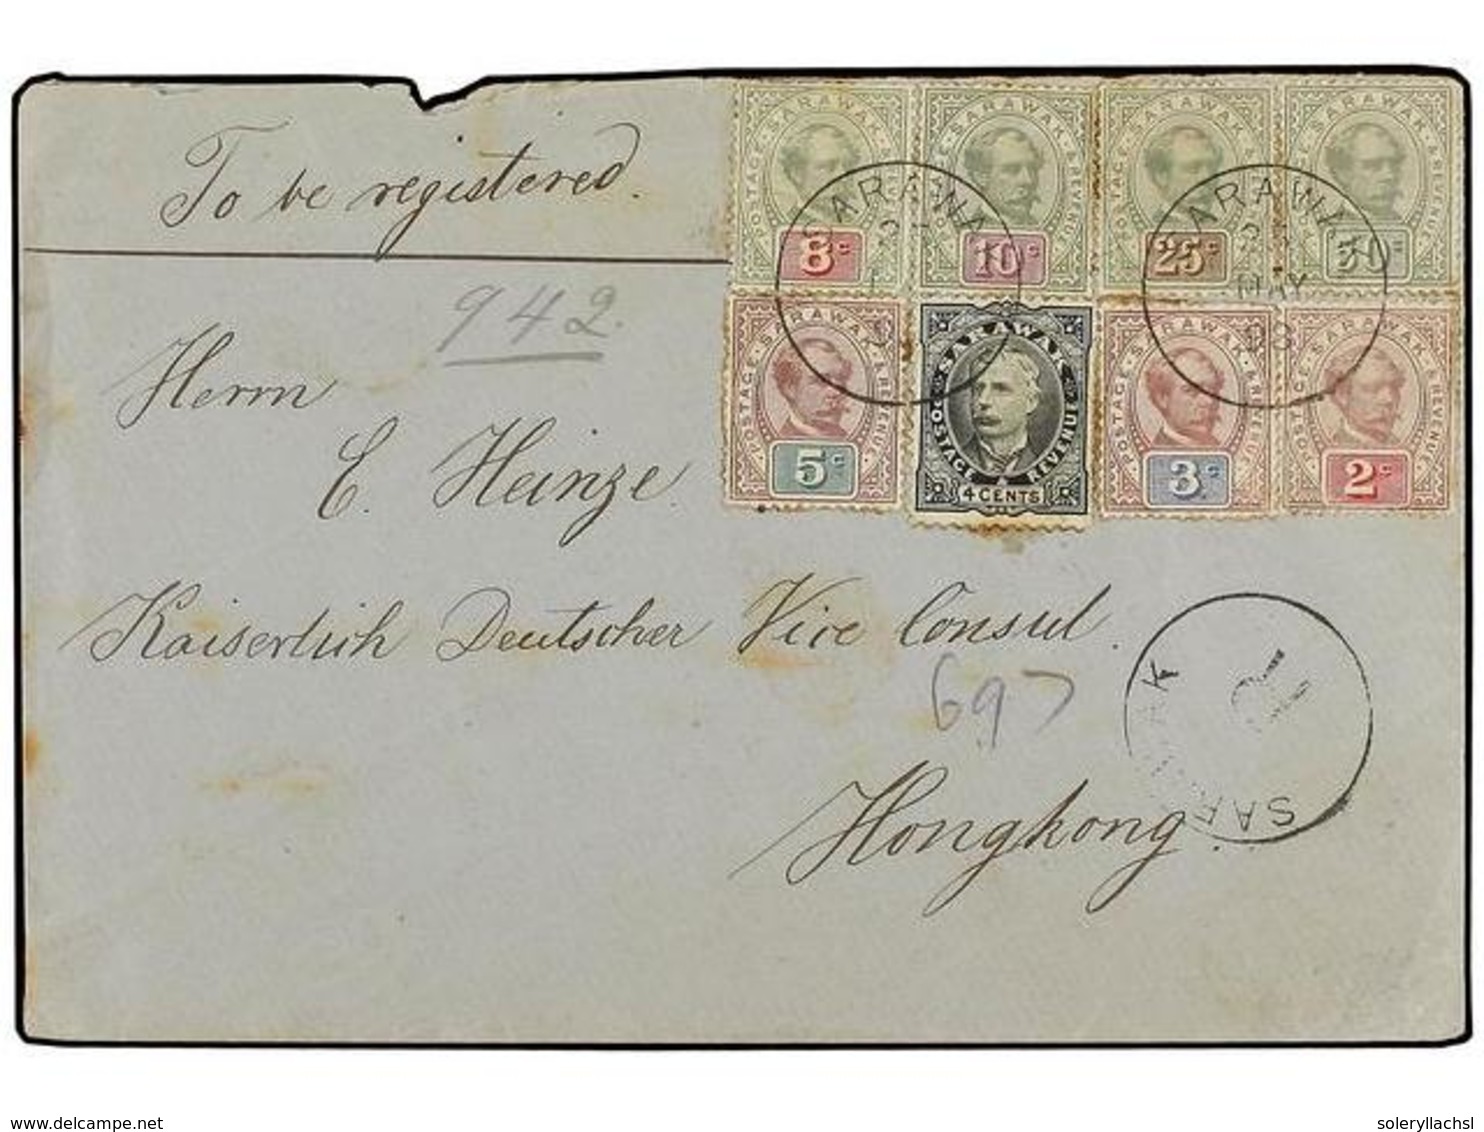 To be registered.
942.
Herrn
E. Heinze.
Kaiserlich Deutscher Vice Consul.
697
Hongkong.
POSTAGE · SARAWAK · & REVENUE
8c
POSTAGE · SARAWAK · & REVENUE
10c
POSTAGE · SARAWAK · & REVENUE
25c
POSTAGE · SARAWAK · & REVENUE
50c
POSTAGE · SARAWAK · & REVENUE
5c
SARAWAK
POSTAGE & REVENUE
4 CENTS
POSTAGE · SARAWAK · & REVENUE
3c
POSTAGE · SARAWAK · & REVENUE
2c
SARAWAK
SARAWAK
MAY
98
SARAWAK
www.delcampe.net
soleryllachsl